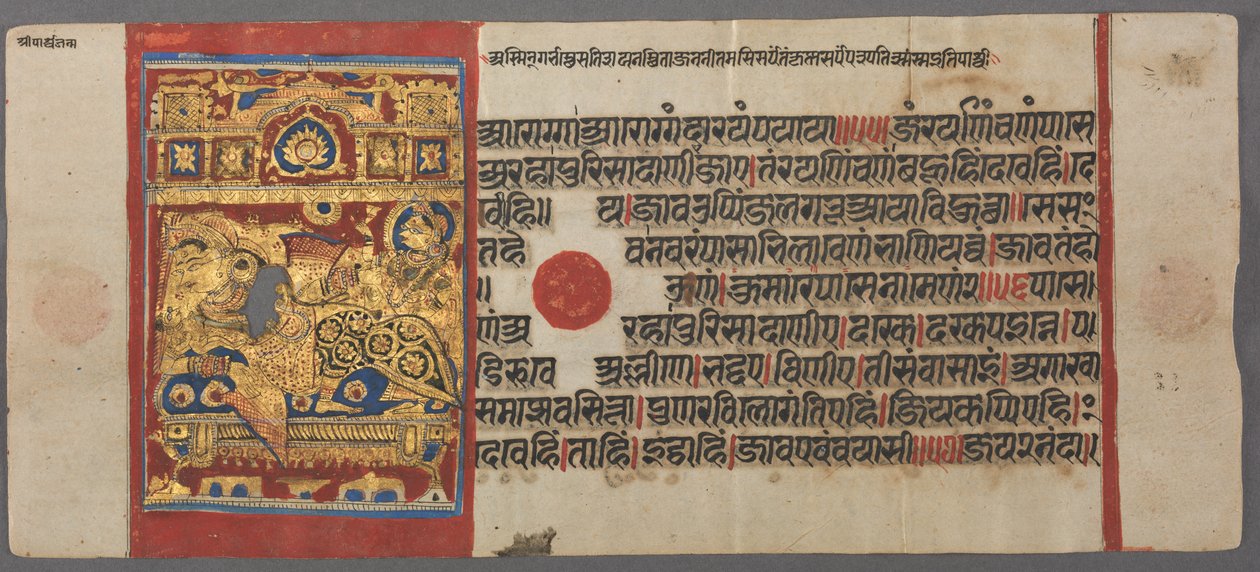 श्रीपार्श्वजन्म
सति शयनस्थिता जननी तमसि सर्पंतं कृष्णसर्पं पश्यति स्म
आरोग्गा आरोग्गं दारयं पयाया॥५५॥ जं रयणिं च णं पासे
अरहा पुरिसादाणीए जाए। तं रयणिं च णं बहूहिं देवेहिं। दे
वीहि॥ य। जाव उप्पिंजलगभूआ यावि हुत्था॥ सेसं
तहे व नवरं पासाभिलावेणं भाणियव्वं। जाव तं हो
उ णं। कुमारे पासे नामेणं २॥५६ पासे
णं अ रहा पुरिसादाणीए। दक्खे। दक्खपइन्ने। प
डिरूवे अल्लीणे। भद्दए। विणीए। तीसं वासाइं। अगारवा
समज्झे वसित्ता। पुणरवि लोगंतिएहिं। जियकप्पिएहिं।
देवेहिं। ताहिं। इट्ठाहिं। जाव एवं वयासी॥५७॥ जय २ नंदा॥